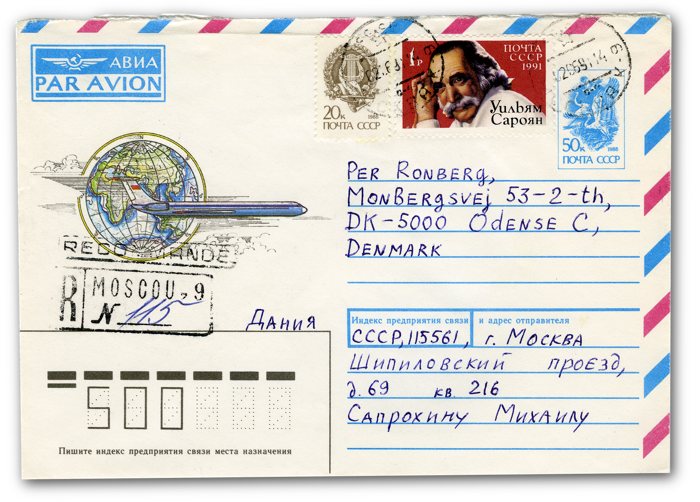 АВИА
PAR AVION
20к 1988
ПОЧТА СССР
1р
ПОЧТА
СССР
1991
Уильям
Сароян
50к 1988
ПОЧТА СССР
PER RONBERG,
MONBERGSVEJ 53-2-th,
DK-5000 ODENSE C,
DENMARK
RECOMMANDE
R
MOSCOU-9
N 115
Дания
Индекс предприятия связи и адрес отправителя
СССР, 115561, г. Москва
Шипиловский проезд,
д. 69 кв. 216
Сапрохину Михаилу
500
Пишите индекс предприятия связи места назначения